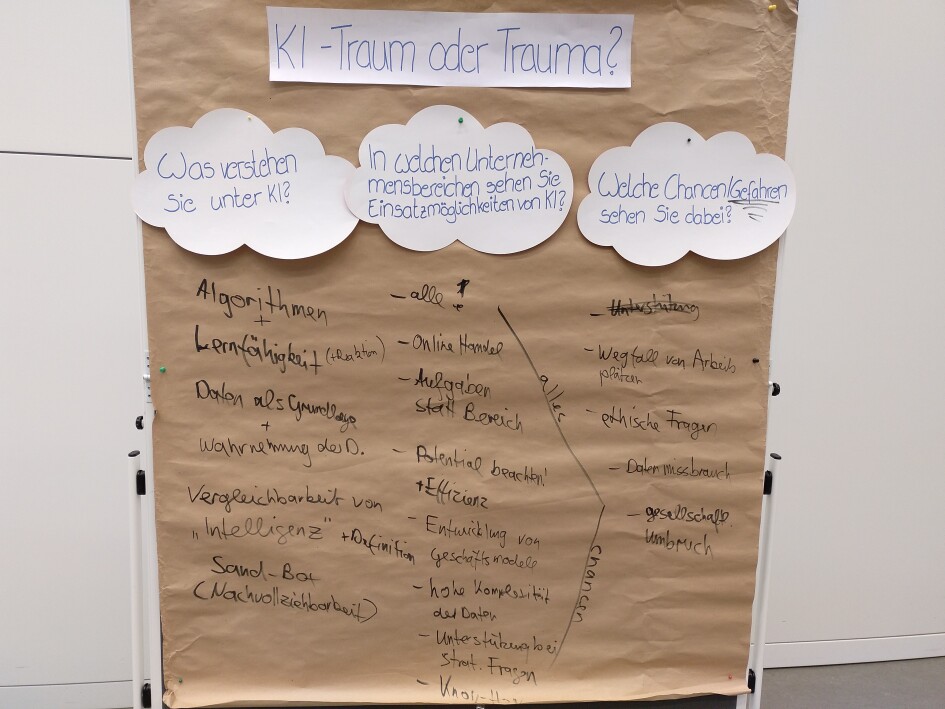 KI - Traum oder Trauma?
Was verstehen
Sie unter KI?
In welchen Unterneh-
mensbereichen sehen Sie
Einsatzmöglichkeiten von KI?
Welche Chancen/Gefahren
sehen Sie dabei?
Algorithmen
+
Lernfähigkeit (+Reaktion)
Daten als Grundlage
+
Wahrnehmung der D.
Vergleichbarkeit von
„Intelligenz" + Definition
Sand-Box
(Nachvollziehbarkeit)
- alle!
- Online Handel
- Aufgaben
statt Bereich
- Potential beachten!
+ Effizienz
- Entwicklung von
Geschäftsmodele
- hohe Komplexität
der Daten
- Unterstützung bei
strat. Fragen
- Know-How
alles
Chancen
- Unterstützung
- Wegfall von Arbeits
plätzen
- ethische Fragen
- Datenmissbrauch
- gesellschaft.
Umbruch